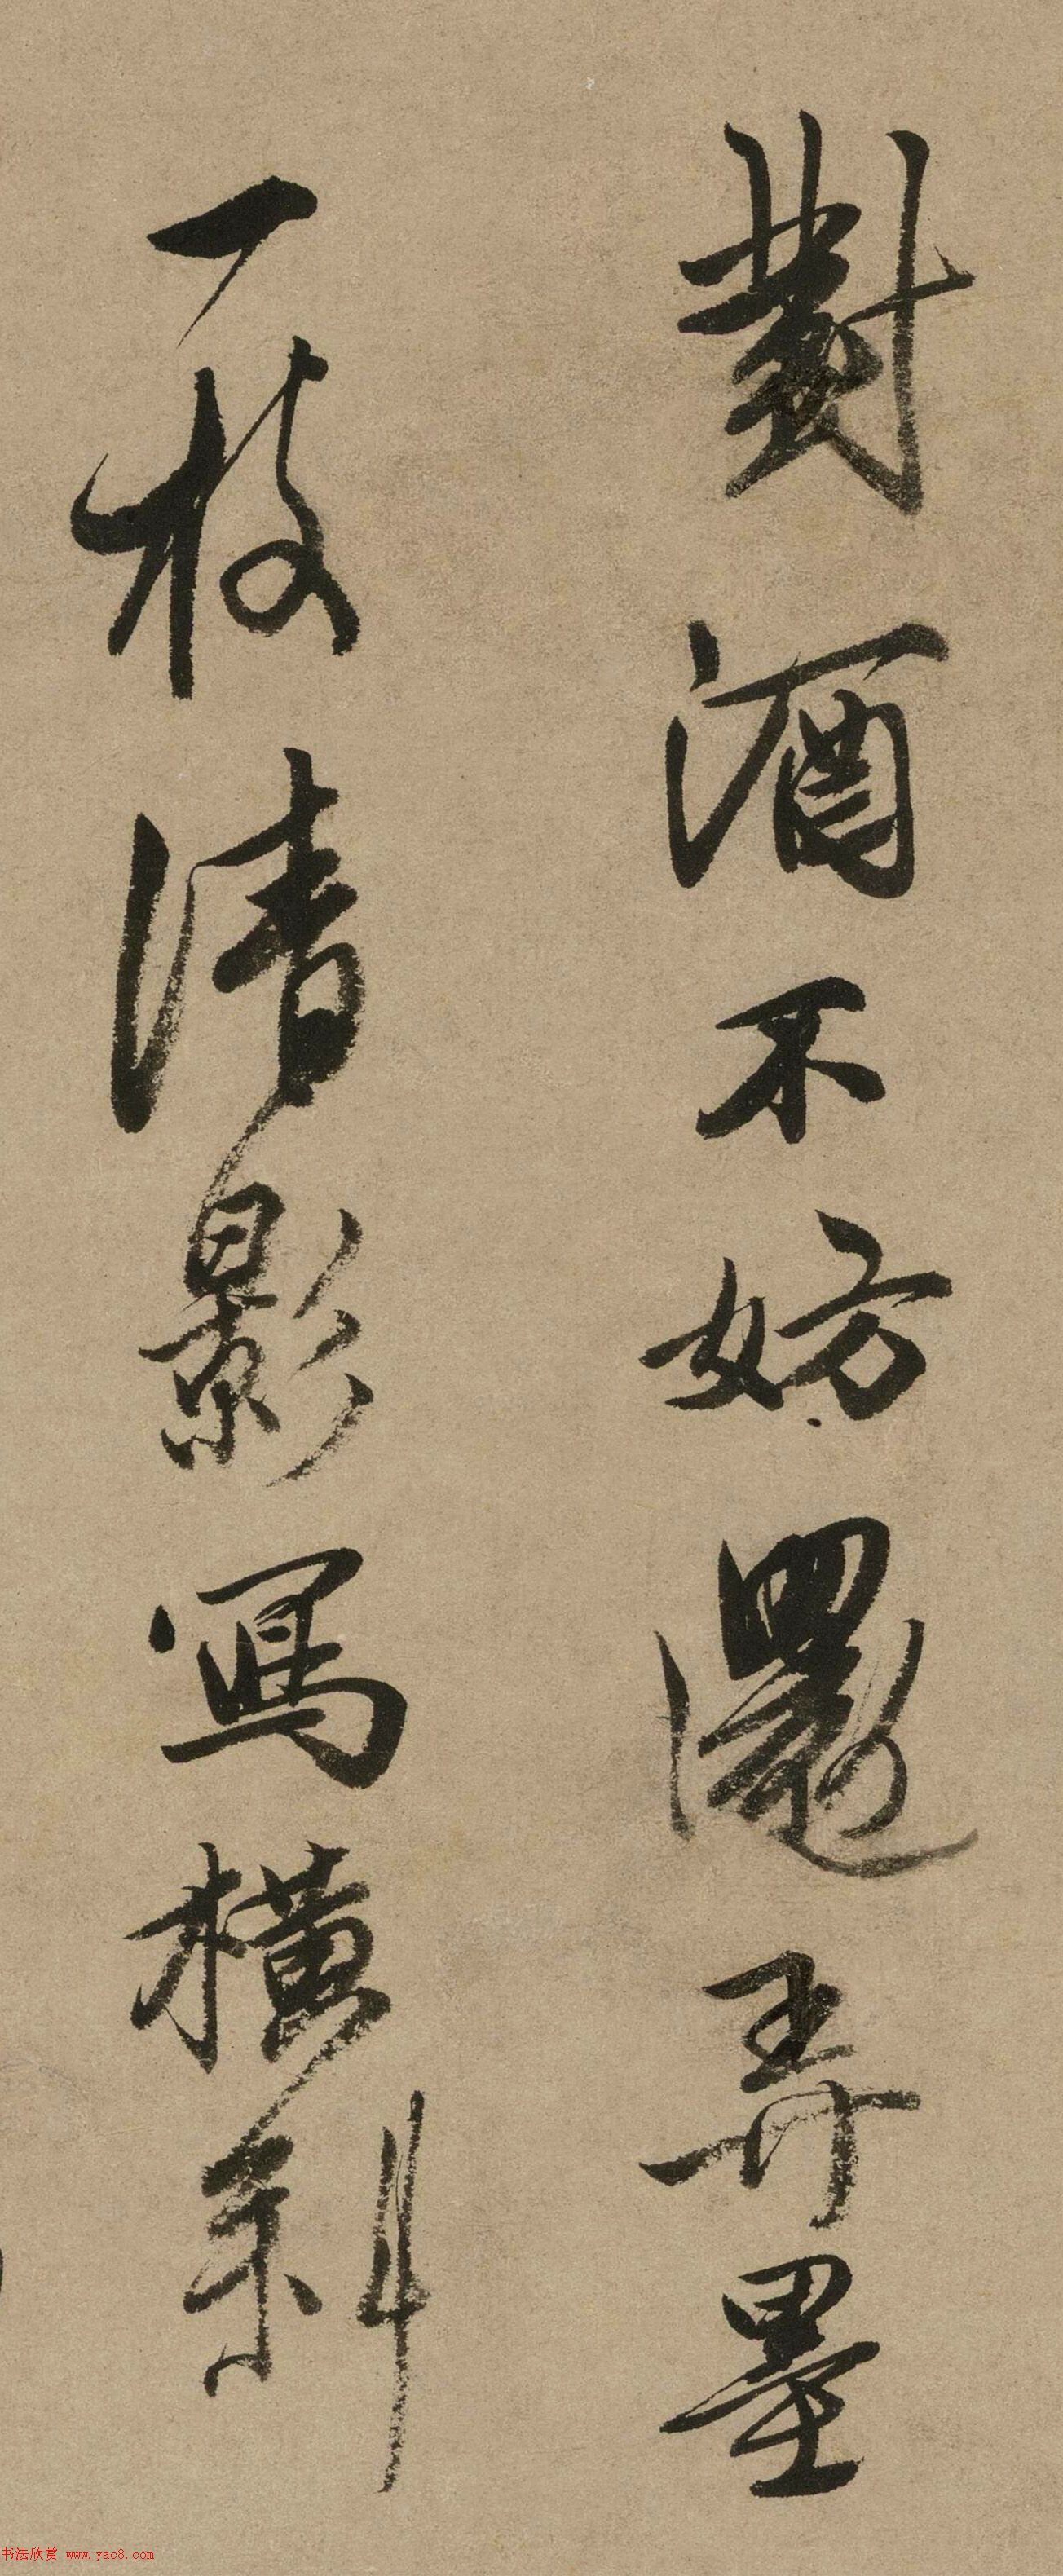 對酒不妨還弄墨
一枝清影寫橫斜
书法欣赏 www.yac8.com